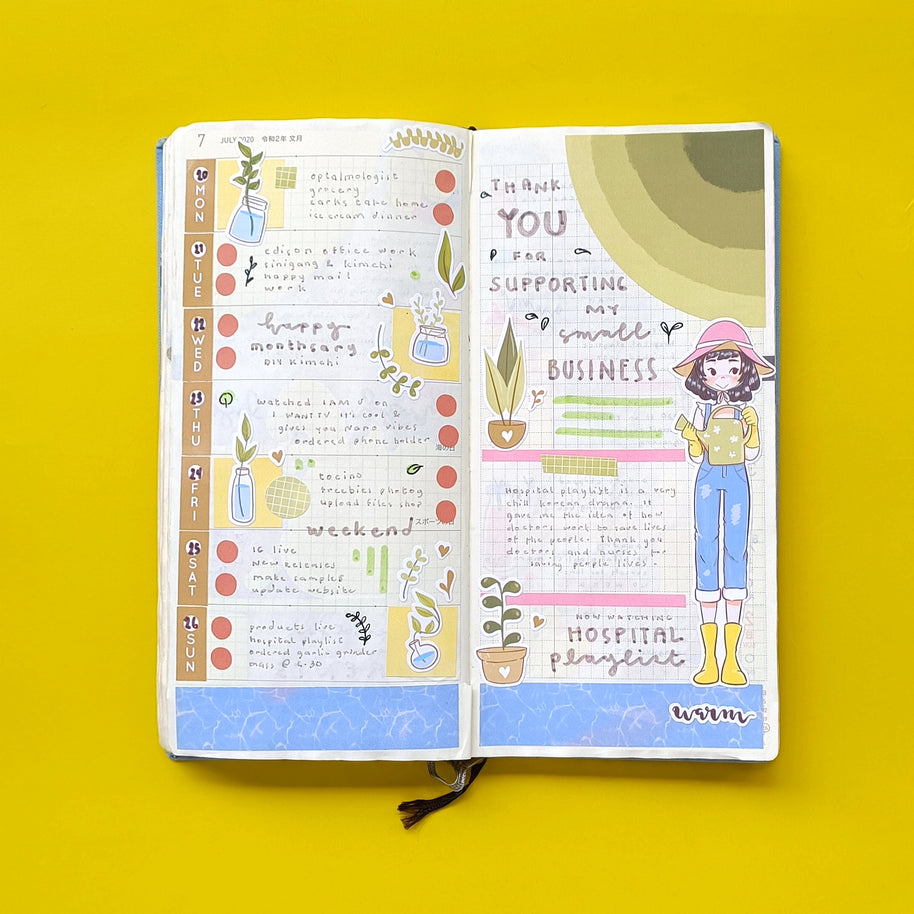 7 JULY 2020 令和2年 文月
20 MON
optalmologist
grocery
earks take home
ice cream dinner
21 TUE
edison office work
sinigang & kimchi
happy mail
work
22 WED
happy
monthsary
DIY Kimchi
23 THU
watched I AM U on
I WANT TV It's cool &
gives you Nana vibes
ordered phone holder
海の日
24 FRI
tocino
freebies photog
upload files shop
スポーツの日
weekend
25 SAT
IG live
New Releases
make samples
update website
26 SUN
products live
hospital playlist
ordered garlic grinder
mass @ 4:30
THANK
YOU
FOR
SUPPORTING
MY
small
BUSINESS
Hospital playlist is a very
chill korean drama. It
gave me the idea of how
doctors work to save lives
of the people. Thank you
doctors and nurses for
saving people lives.
NOW WATCHING
HOSPITAL
playlist
warm